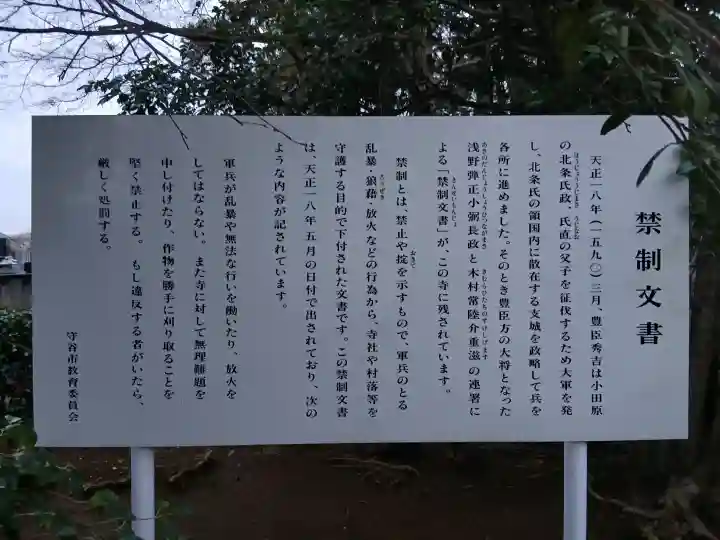 禁制文書
天正一八年(一五九〇)三月、豊臣秀吉は小田原
の北条氏政、氏直の父子を征伐するため大軍を発
し、北条氏の領国内に散在する支城を政略して兵を
各所に進めました。そのとき豊臣方の大将となった
浅野弾正小弼長政と木村常陸介重滋の連署に
よる「禁制文書」が、この寺に残されています。
禁制とは、禁止や掟を示すもので、軍兵のとる
乱暴・狼藉・放火などの行為から、寺社や村落等を
守護する目的で下付された文書です。この禁制文書
は、天正一八年五月の日付で出されており、次の
ような内容が記されています。
軍兵が乱暴や無法な行いを働いたり、放火を
してはならない。また寺に対して無理難題を
申し付けたり、作物を勝手に刈り取ることを
堅く禁止する。もし違反する者がいたら、
厳しく処罰する。
守谷市教育委員会